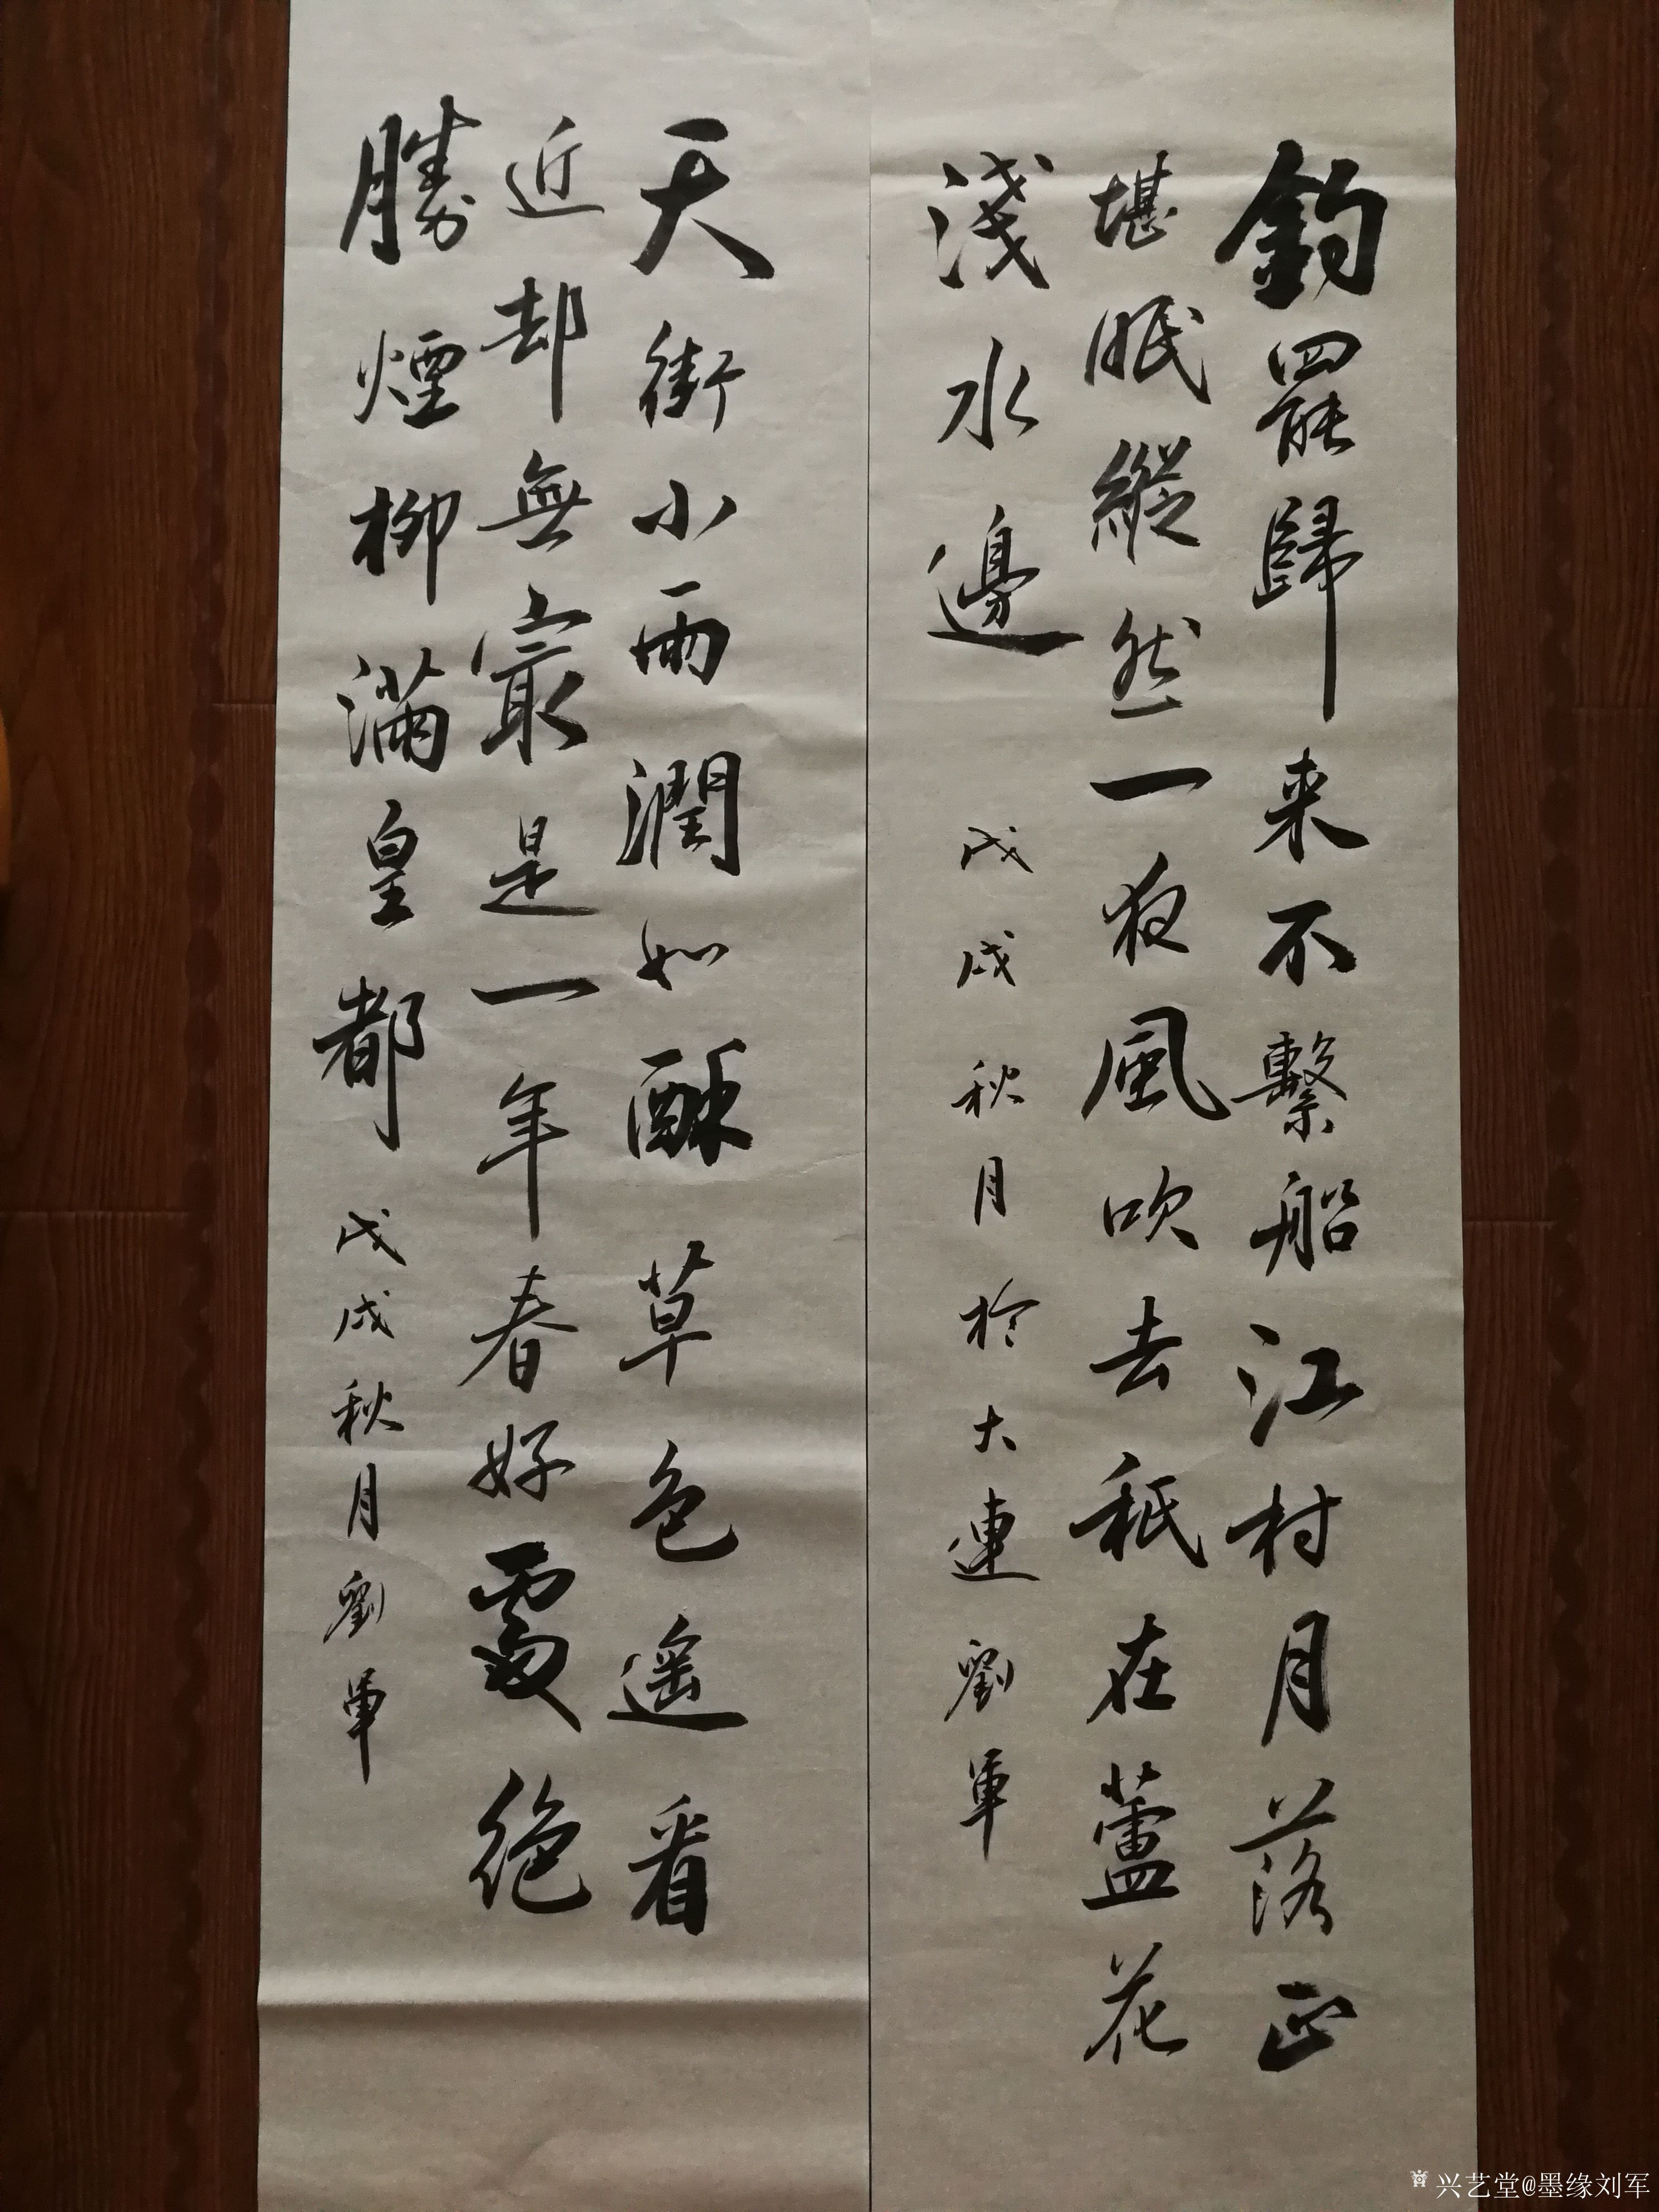 釣罷歸来不繫船江村月落正
堪眠縱然一夜風吹去秖在蘆花
淺水邊
戊戌秋月於大連劉軍
天街小雨潤如酥草色遥看
近却無寂是一年春好處絶
勝煙柳滿皇都
戊戌秋月劉軍
兴艺堂@墨缘刘军